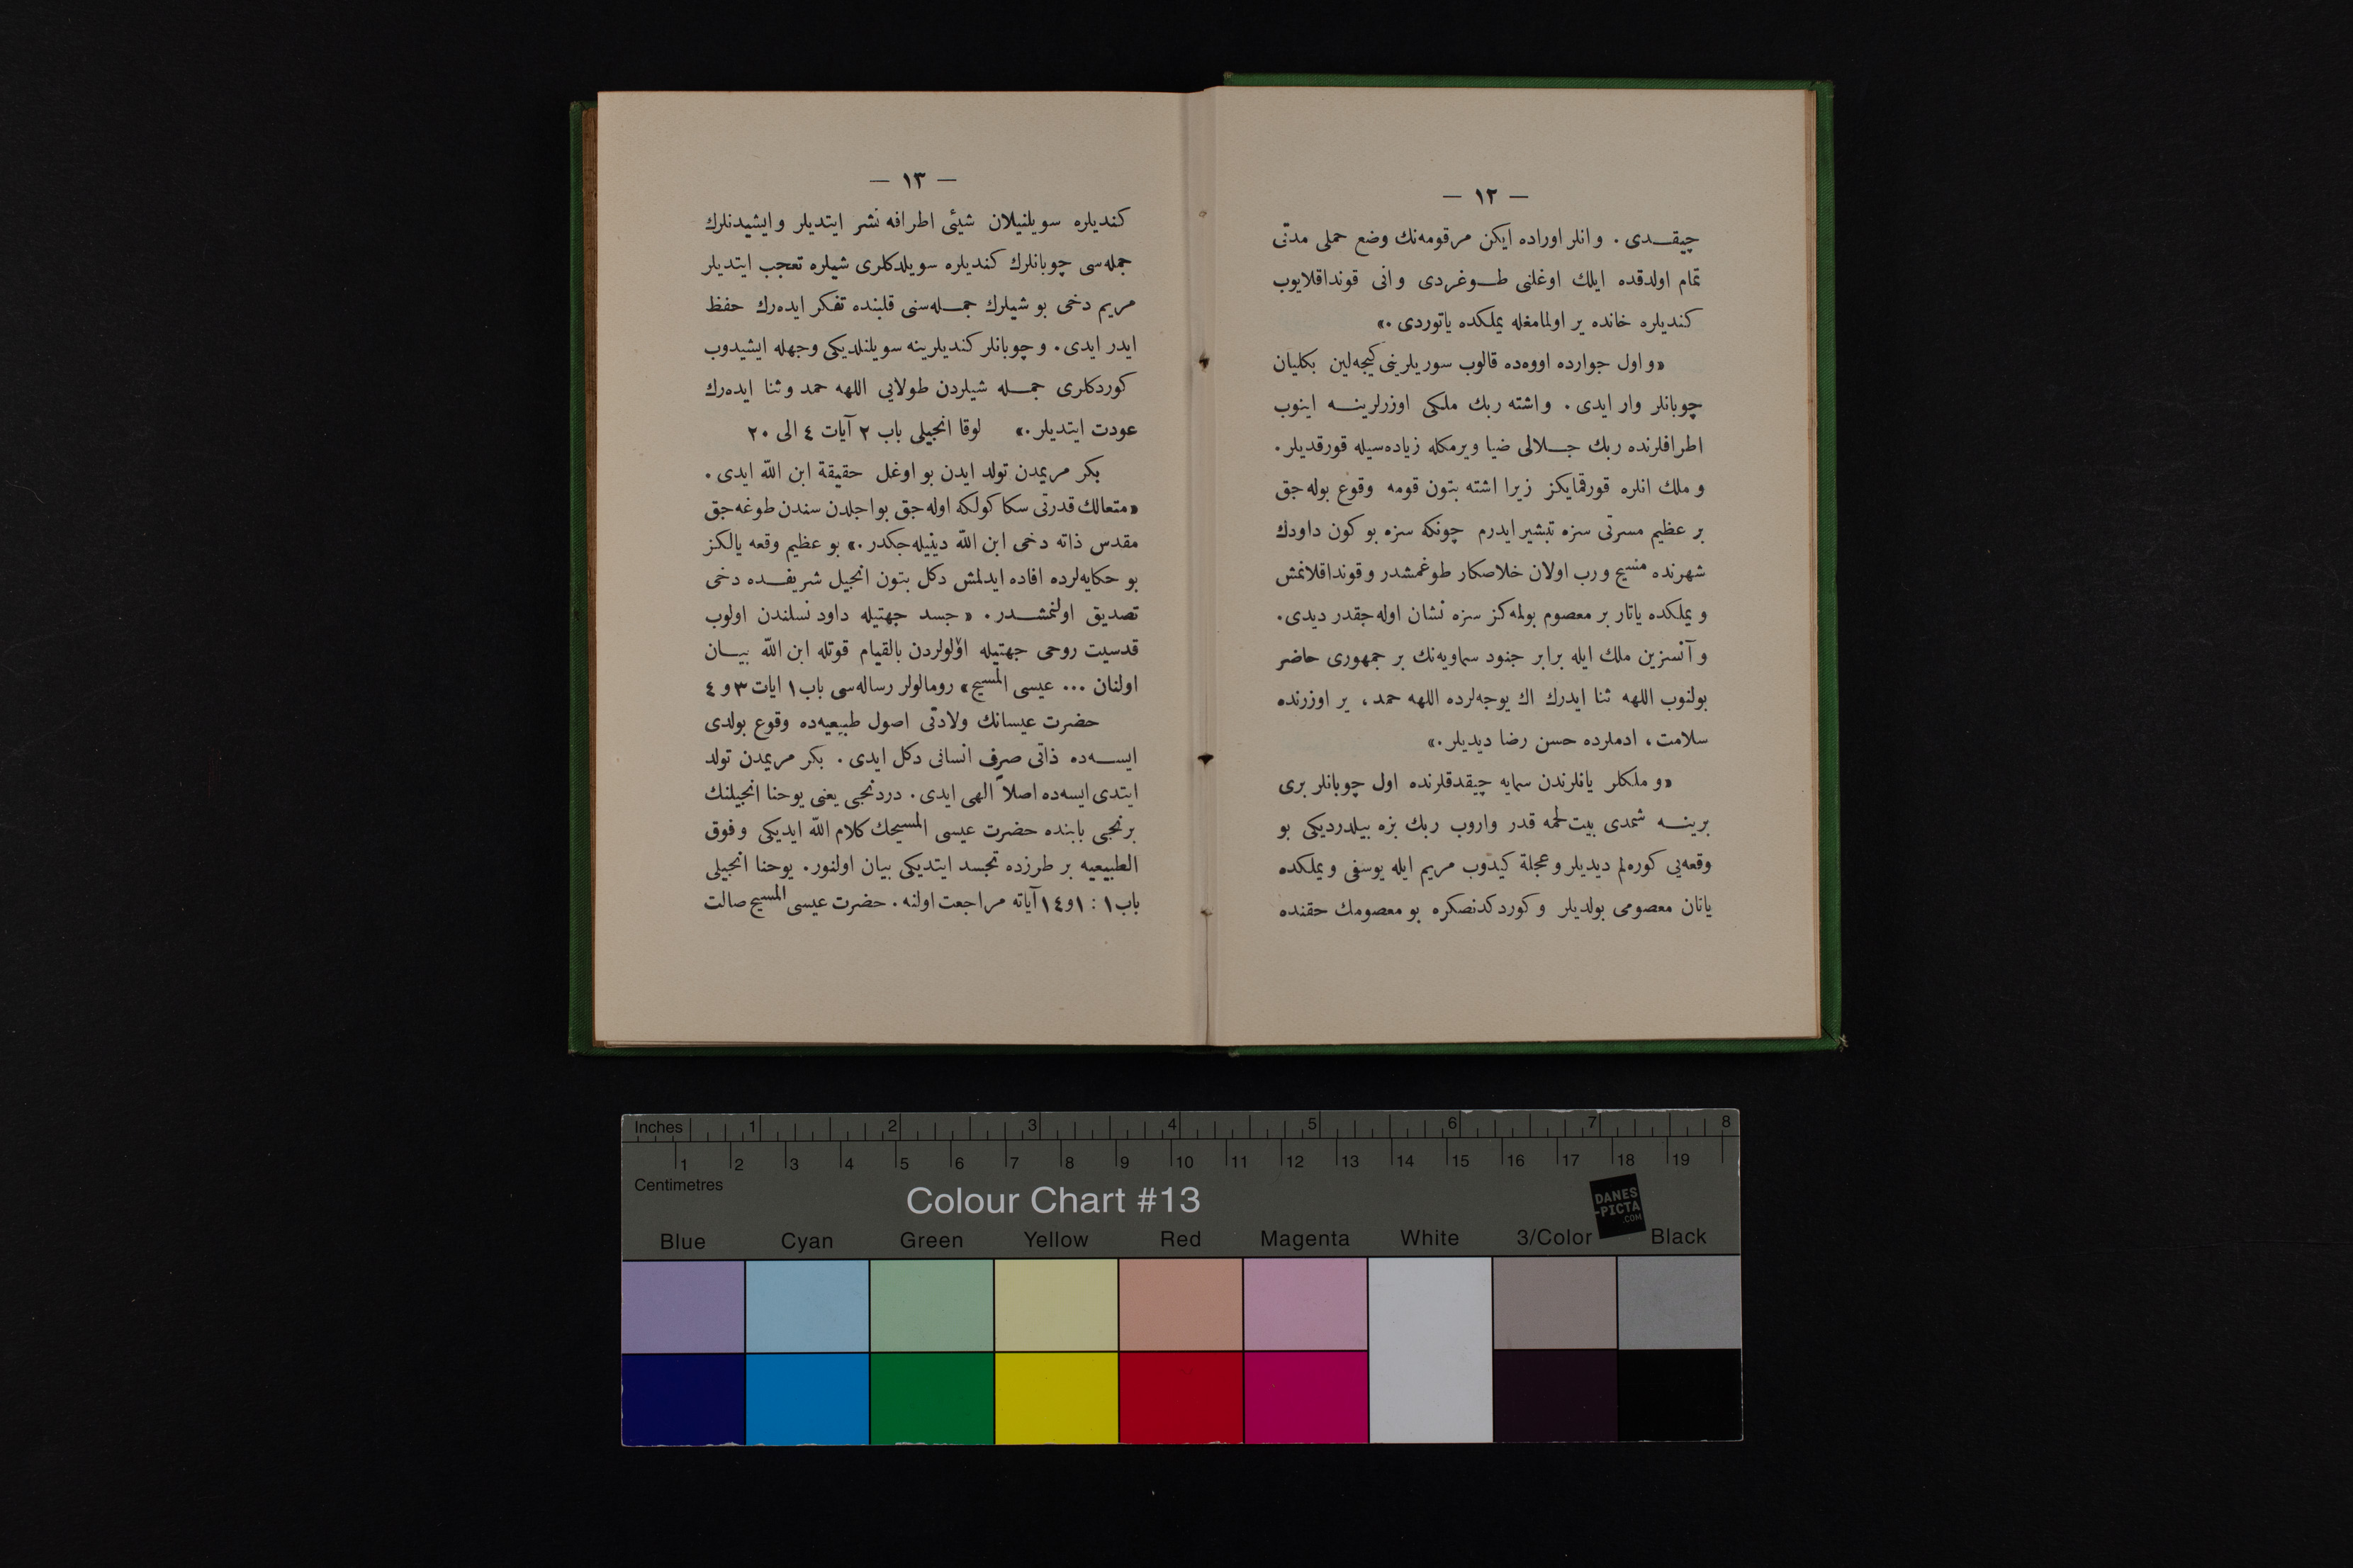 — ١٢ —
چيقـــدى . وانلر اوراده ايكن مرقومه‌نك وضع حملى مدتى
تمام اولدقده ايلك اوغلنى طـــوغردى وانى قونداقلايوب
كنديلره خانده ير اولمامغله يملكده ياتوردى .»
«و اول جوارده اووه‌ده قالوب سوريلرينى كيجه‌لين بكليان
چوبانلر وار ايدى . واشته ربك ملكى اوزرلرينـــه اينوب
اطرافلرنده ربك جـــلالى ضيا ويرمكله زياده‌سيله قورقديلر .
و ملك انلره قورقمايكز زيرا اشته بتون قومه وقوع بوله‌جق
بر عظيم مسرتى سزه تبشير ايدرم چونكه سزه بو كون داودك
شهرنده مسيح ورب اولان خلاصكار طوغمشدر وقونداقلانمش
و يملكده ياتار بر معصوم بولمه‌كز سزه نشان اوله‌جقدر ديدى .
و آنسزين ملك ايله برابر جنود سماويه‌نك بر جمهورى حاضر
بولنوب اللهه ثنا ايدرك اك يوجه‌لرده اللهه حمد ، ير اوزرنده
سلامت ، ادملرده حسن رضا ديديلر .»
«و ملكلر يانلرندن سمايه چيقدقلرنده اول چوبانلر برى
برينـــه شمدى بيت‌لحمه قدر واروب ربك بزه بيلدرديكى بو
وقعه‌يى كوره‌لم ديديلر و عجلة كيدوب مريم ايله يوسفى و يملكده
يانان معصومى بولديلر وكوردكدنصكره بو معصومك حقنده
— ١٣ —
كنديلره سويلنيلان شيئى اطرافه نشر ايتديلر وايشيدنلرك
جمله‌سى چوبانلرك كنديلره سويلدكلرى شيلره تعجب ايتديلر
مريم دخى بو شيلرك جمـــله‌سنى قلبنده تفكر ايده‌رك حفظ
ايدر ايدى . و چوبانلر كنديلرينه سويلنلديكى وجهله ايشيدوب
كوردكلرى جمـــله شيلردن طولايى اللهه حمد وثنا ايده‌رك
عودت ايتديلر .» لوقا انجيلى باب ٢ آيات ٤ الى ٢٠
بكر مريمدن تولد ايدن بو اوغل حقيقة ابن اللّٰه ايدى .
«متعالك قدرتى سكا كولكه اوله‌جق بواجلدن سندن طوغه‌جق
مقدس ذاته دخى ابن اللّٰه دينيله‌جكدر .» بو عظيم وقعه يالكز
بو حكايه‌لرده افاده ايدلمش دكل بتون انجيل شريفـــده دخى
تصديق اولنمشـــدر . « جسد جهتيله داود نسلندن اولوب
قدسيت روحى جهتيله اؤلولردن بالقيام قوتله ابن اللّٰه بيـــان
اولنان ... عيسى المسيح» رومالولر رساله‌سى باب ١ ايات ٣ و ٤
حضرت عيسانك ولادتى اصول طبيعيه‌ده وقوع بولدى
ايســـه‌ده ذاتى صرف انسانى دكل ايدى . بكر مريمدن تولد
ايتدى ايسه‌ده اصلاً الهى ايدى . دردنجى يعنى يوحنا انجيلنك
برنجى بابنده حضرت عيسى المسيحك كلام اللّٰه ايديكى وفوق
الطبيعيه بر طرزده تجسد ايتديكى بيان اولنور . يوحنا انجيلى
باب ١ : ١ و ١٤ آياته مراجعت اولنه . حضرت عيسى المسيح صالت
Inches 1 2 3 4 5 6 7 8
1 2 3 4 5 6 7 8 9 10 11 12 13 14 15 16 17 18 19
Centimetres
Colour Chart #13
DANES
-PICTA
.COM
Blue Cyan Green Yellow Red Magenta White 3/Color Black